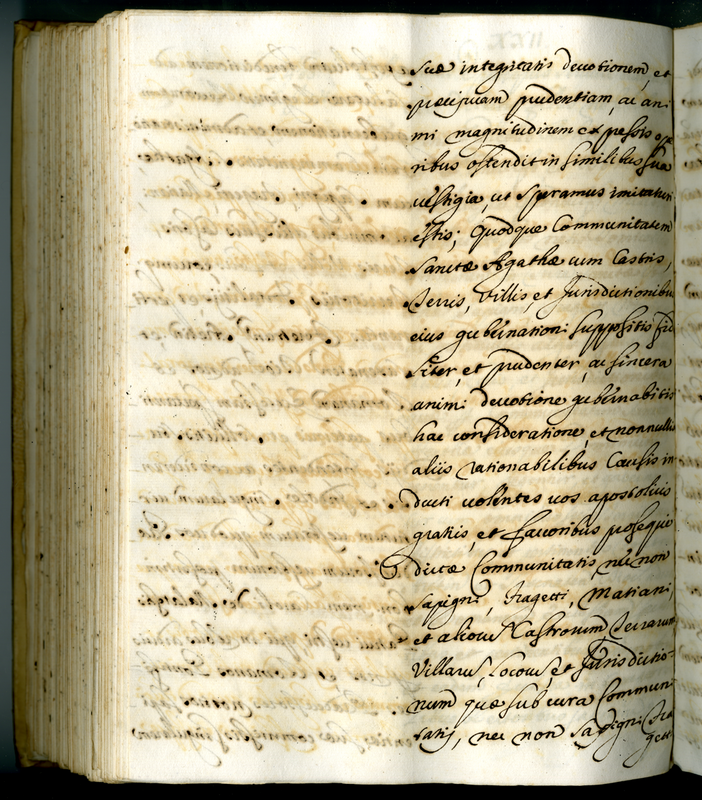 suæ integritatis devotionem, et
præcipuam prudentiam, ac ani
mi magnitudinem expressis ope
ribus ostendit in similibus sua
vestigia, ut speramus imitaturi
estis; Quodque Communitatem
Sanctæ Agathæ cum Castris,
Terris, Villis, et Jurisdictionibus
eius gubernationi suppositis fide
liter, et prudenter, ac sincera
animi devotione gubernabitis
hac consideratione, et nonnullis
aliis rationabilibus Causis in
ducti volentes vos apostolicis
gratiis, et favoribus prosequi
dictæ Communitatis, nec non
Sapigni, Tragetti, Matiani,
et aliorum Castrorum Terrarum
Villarum, Locorum, et Jurisdictio-
num quæ sub cura Communi
tatis, nec non Sapigni Tra
getti